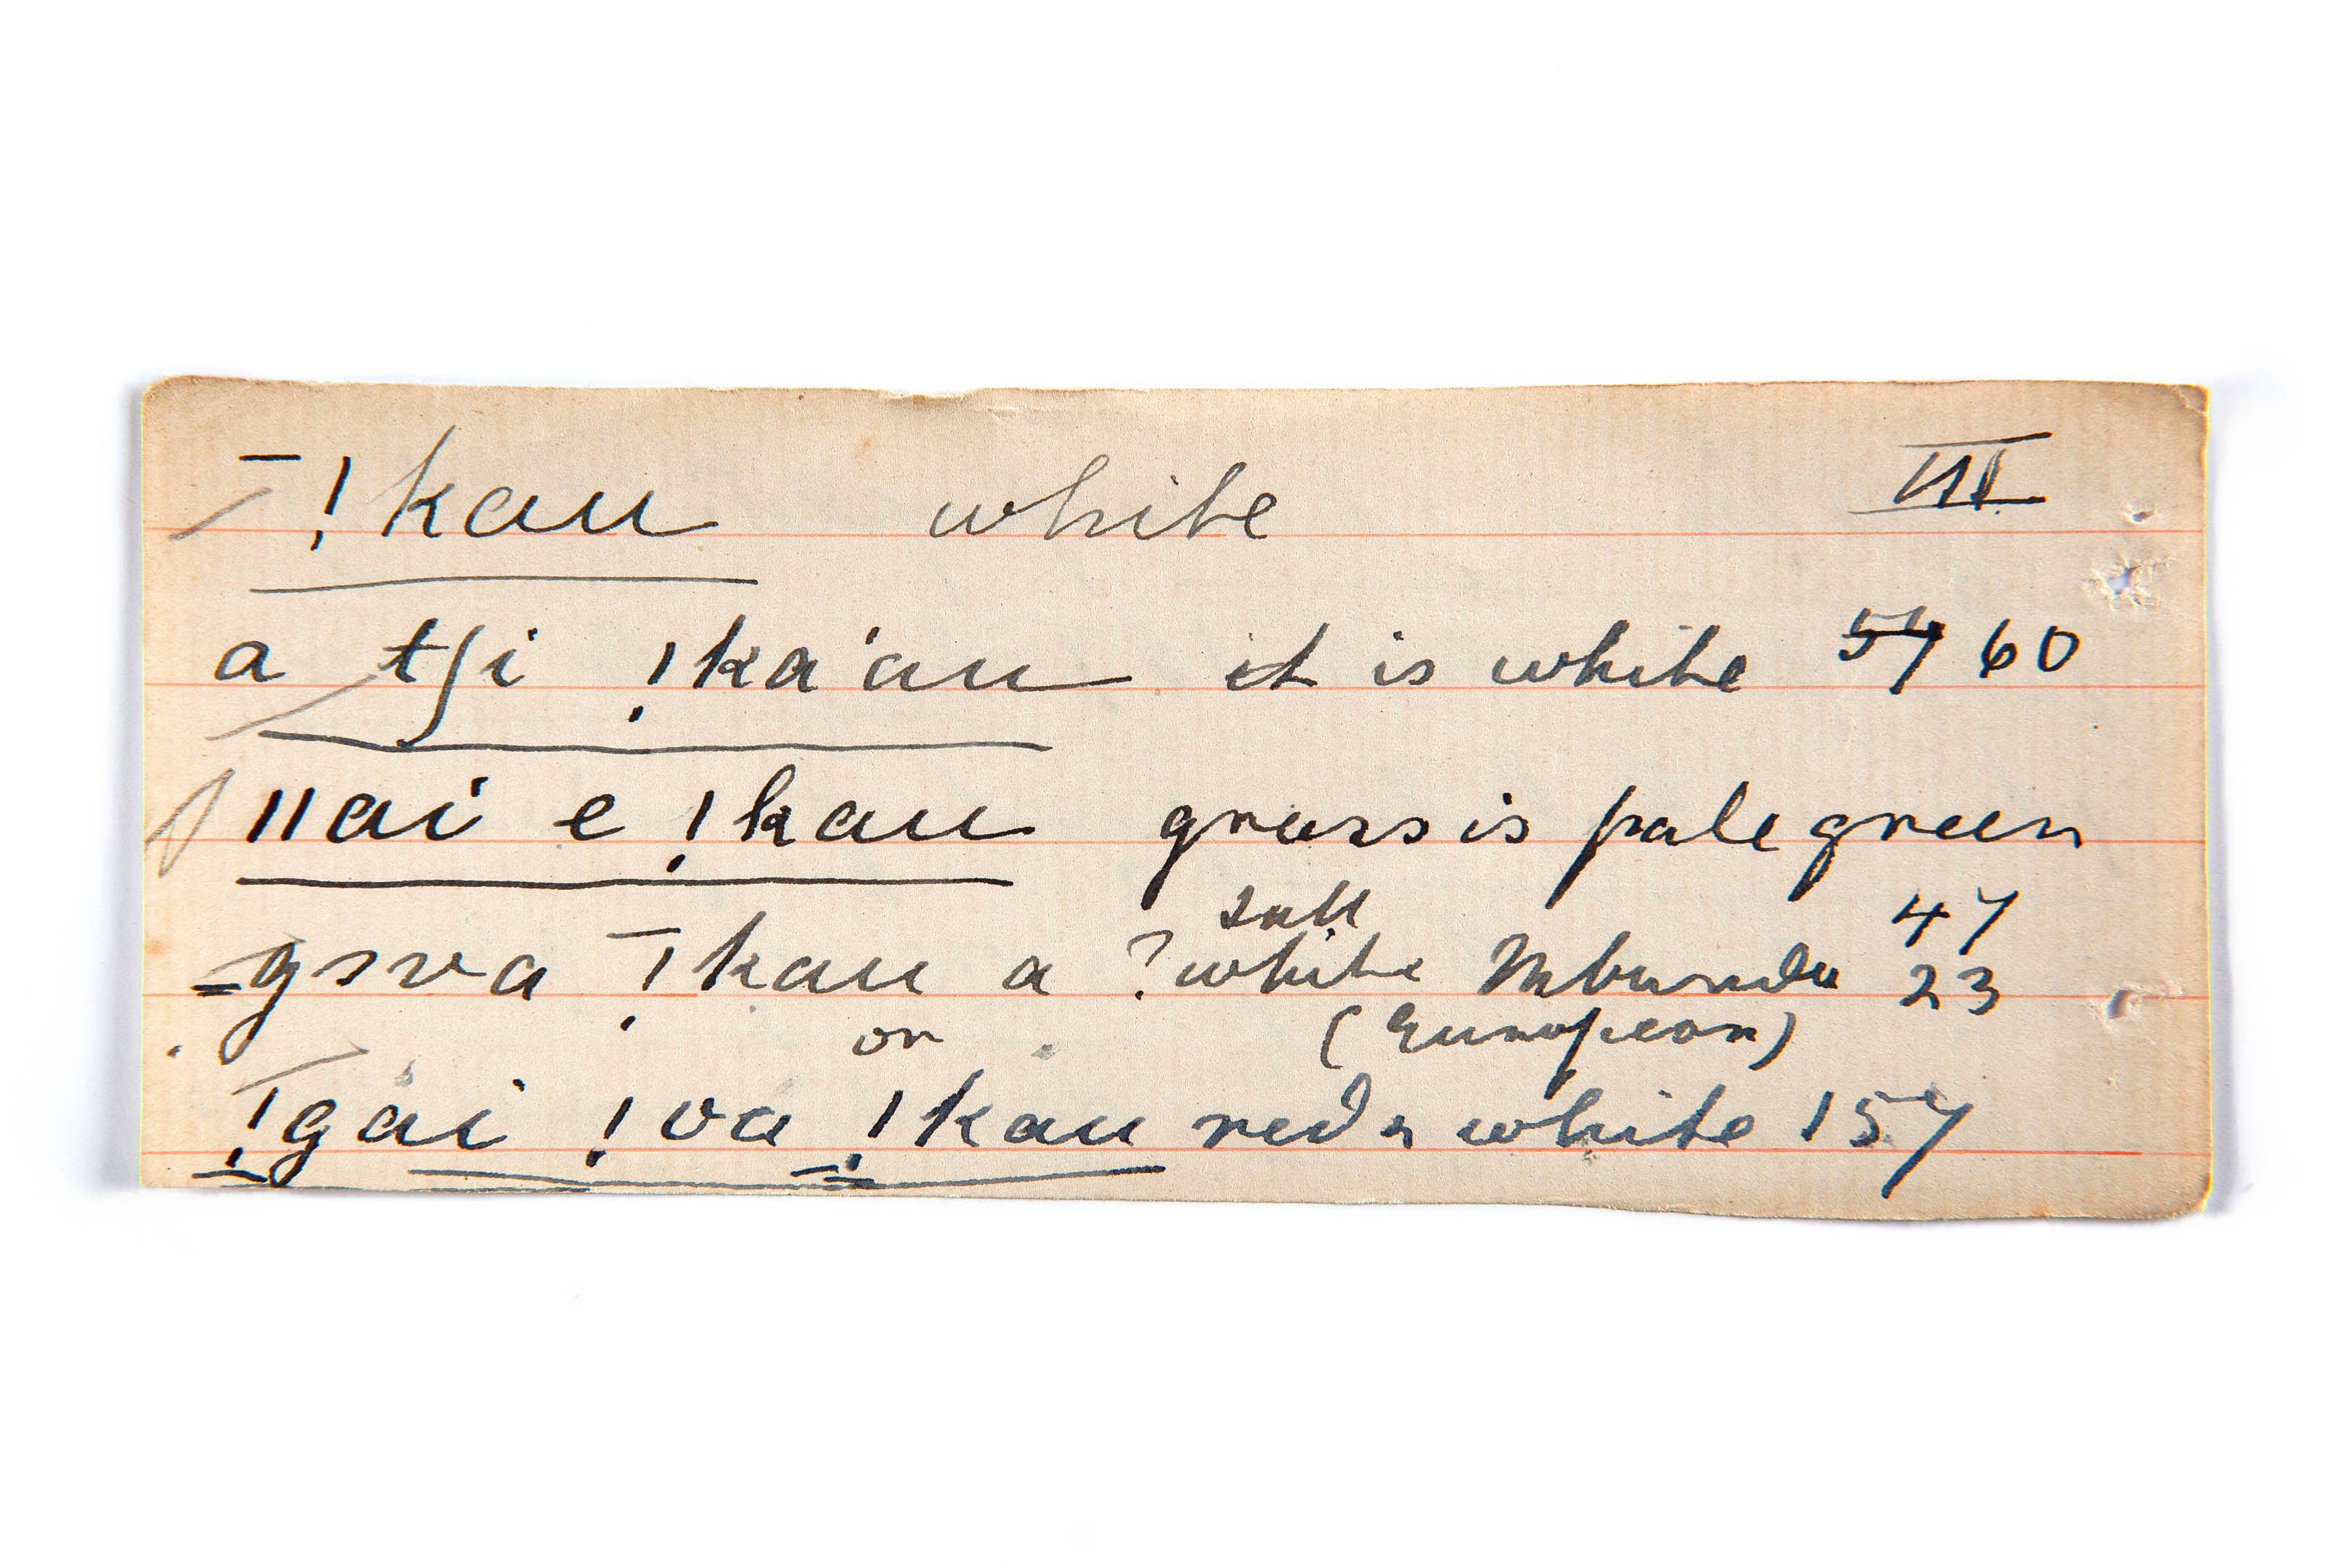 ˉ!kau white III
a tʃi !ka'au it is white 57 60
ǁai e !kau grass is pale green
salt 47
=gɔva ˉ!kau a ? white Mbundu 23
or (European)
ˉ!gai !va !kau red & white 157